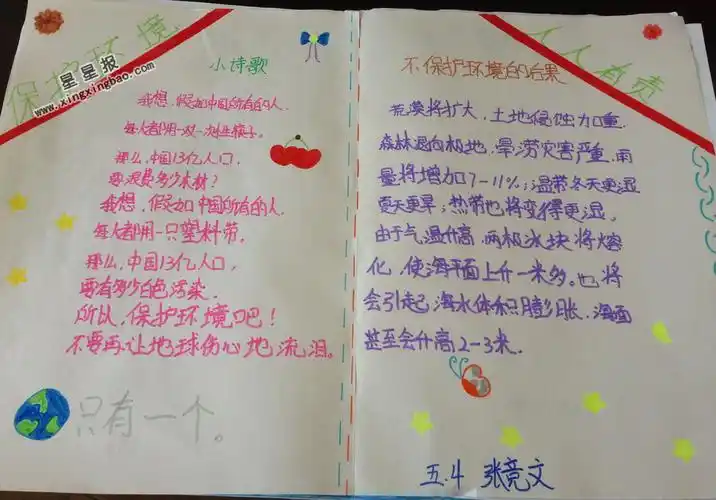 保护环境
星星报
www.xingxingbao.com
小诗歌
我想，假如中国所有的人，
每人都用一双一次性筷子。
那么，中国13亿人口，
要浪费多少木材？
我想，假如中国所有的人，
每人都用一只塑料带。
那么，中国13亿人口，
要有多少白色污染。
所以，保护环境吧！
不要再让地球伤心地流泪。
只有一个。
人人有责
不保护环境的后果
荒漠将扩大，土地侵蚀加重，
森林退向极地，旱涝灾害严重，雨
量将增加7-11%；温带冬天更湿
夏天更旱；热带也将变得更湿，
由于气温升高，两极冰块将熔
化，使海平面上升一米多。也将
会引起海水体积膨胀，海面
甚至会升高2-3米.
五.4 张竞文